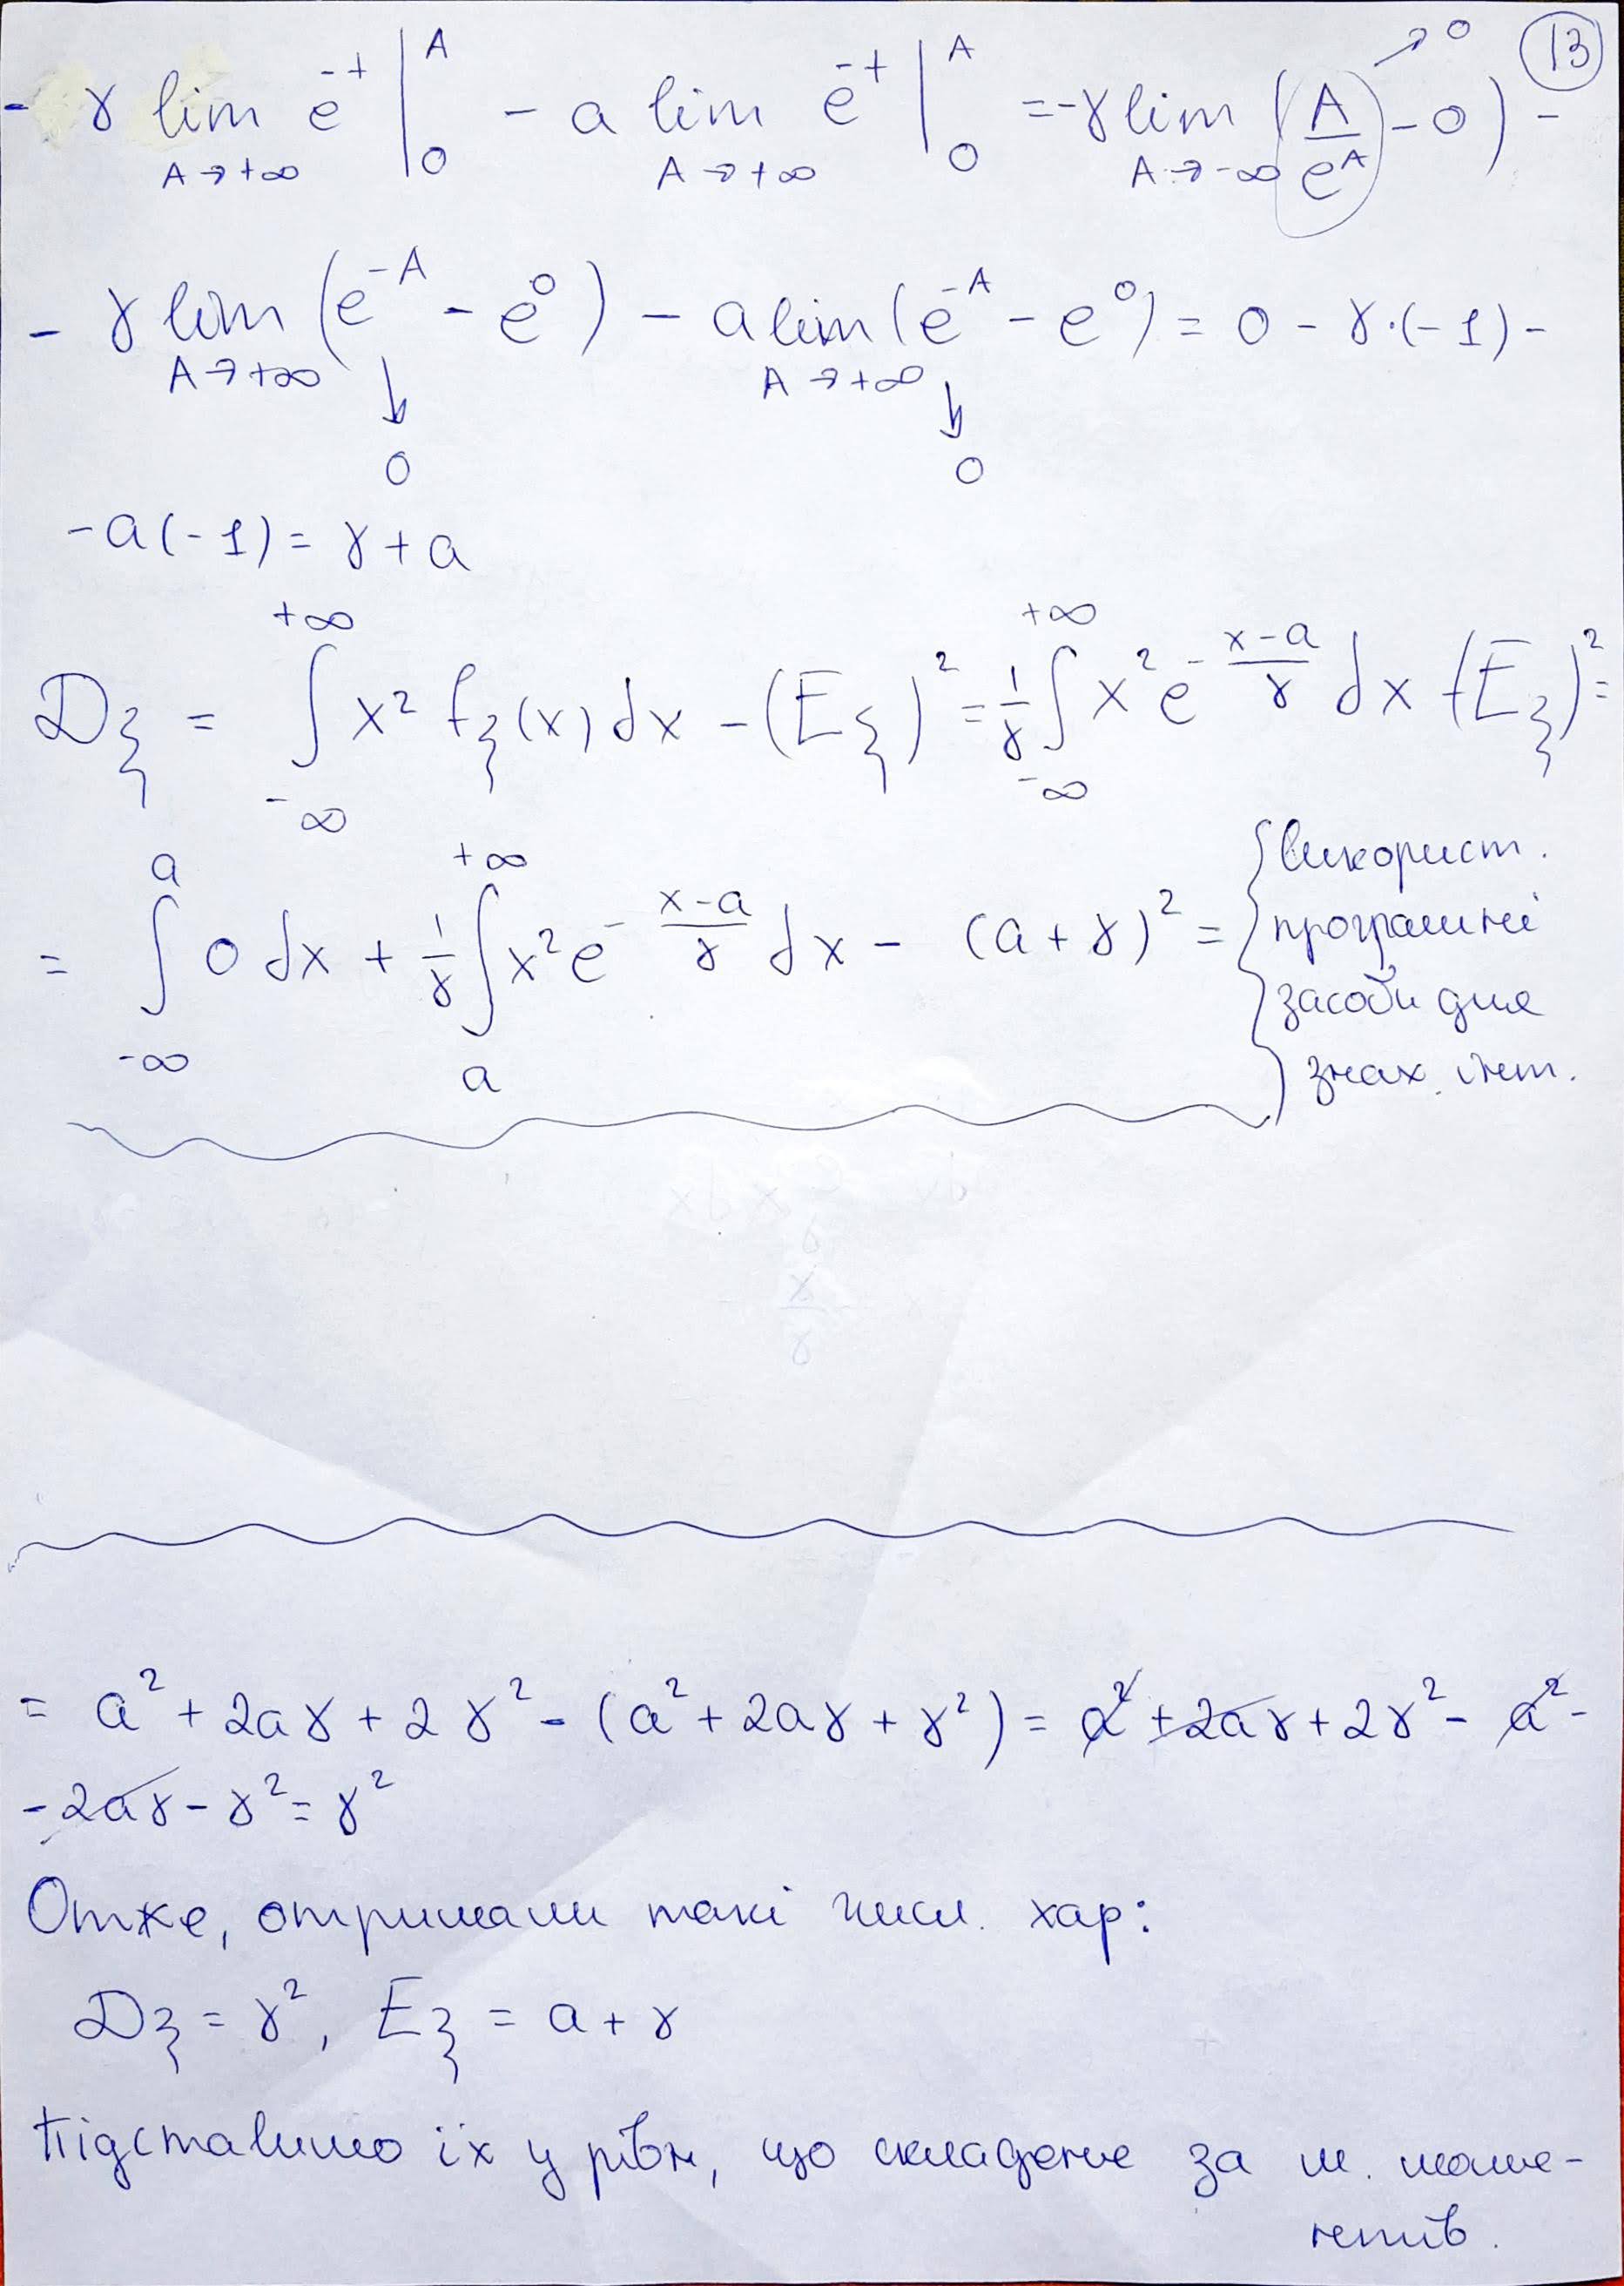 13
- γ lim e^-t |_0^A - a lim e^-t |_0^A = -γ lim (A/e^A - 0) -
A→+∞ A→+∞ A→-∞ → 0
- γ lim (e^-A - e^0) - a lim (e^-A - e^0) = 0 - γ·(-1) -
A→+∞ ↓ 0 A→+∞ ↓ 0
-a(-1) = γ + a
Dξ = ∫_-∞^+∞ x² fξ(x) dx - (Eξ)² = 1/γ ∫_-∞^+∞ x² e^-(x-a)/γ dx - (Eξ)² =
= ∫_-∞^a 0 dx + 1/γ ∫_a^+∞ x² e^-(x-a)/γ dx - (a + γ)² = {
використ.
програмні
засоби для
знах. інт.
= a² + 2aγ + 2γ² - (a² + 2aγ + γ²) = a² + 2aγ + 2γ² - a² -
- 2aγ - γ² = γ²
Отже, отримали такі числ. хар:
Dξ = γ², Eξ = a + γ
Підставимо їх у рівн, що складене за м. моме-
нтів.